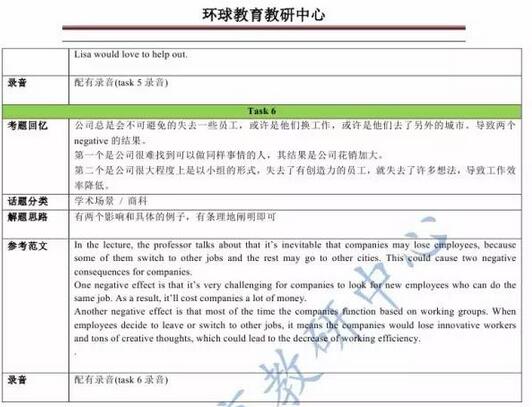 环球教育教研中心
Lisa would love to help out.
录音 配有录音(task 5 录音)
Task 6
考题回忆 公司总是会不可避免的失去一些员工，或许是他们换工作，或许是他们去了另外的城市。导致两个
negative 的结果。
第一个是公司很难找到可以做同样事情的人，其结果是公司花销加大。
第二个是公司很大程度上是以小组的形式，失去了有创造力的员工，就失去了许多想法，导致工作效
率降低。
话题分类 学术场景 / 商科
解题思路 有两个影响和具体的例子，有条理地阐明即可
参考范文 In the lecture, the professor talks about that it's inevitable that companies may lose employees, because
some of them switch to other jobs and the rest may go to other cities. This could cause two negative
consequences for companies.
One negative effect is that it's very challenging for companies to look for new employees who can do the
same job. As a result, it'll cost companies a lot of money.
Another negative effect is that most of the time the companies function based on working groups. When
employees decide to leave or switch to other jobs, it means the companies would lose innovative workers
and tons of creative thoughts, which could lead to the decrease of working efficiency.
.
录音 配有录音(task 6 录音)
育教研中心